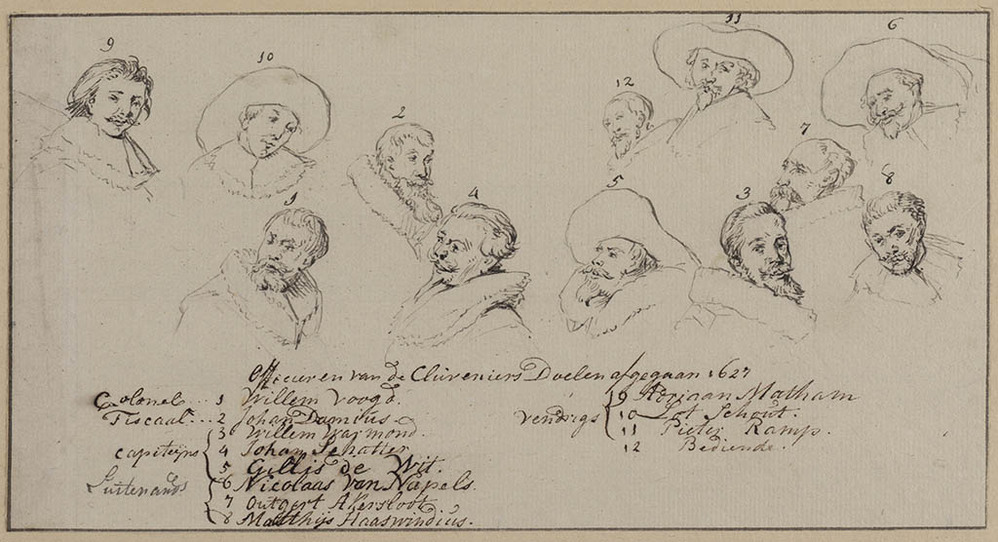 9
10
11
6
12
2
7
8
1
4
5
3
Officieren van de Cluveniers Doelen afgegaan 1627
Colonel... 1 Willem Voogd.
Fiscaal... 2 Johan Damius
3 Willem Warmond.
capiteijns 4 Johan Schatter
5 Gillis de Wit.
Luitenants 6 Nicolaas van Napels.
7 Outgert Akersloot
8 Matthijs Haaswindius.
vendrigs 9 Adriaan Matham
10 Lot Schout.
11 Pieter Ramp.
12 Bediende.